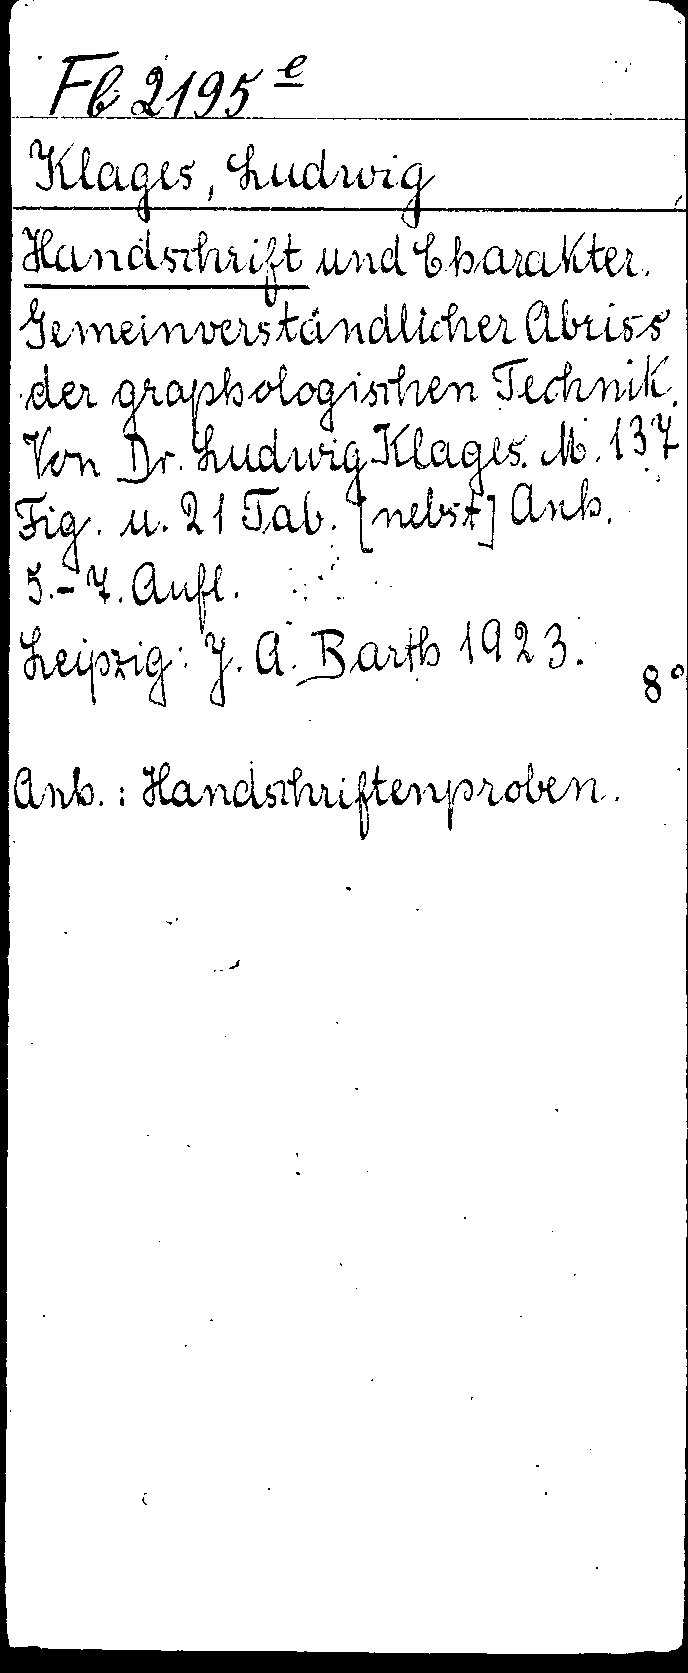 Fb 2195 e
Klages, Ludwig
Handschrift und Charakter.
Gemeinverständlicher Abriss
der graphologischen Technik.
Von Dr. Ludwig Klages. M. 137
Fig. u. 21 Tab. [nebst] Anh.
5.-7. Aufl.
Leipzig: J. A. Barth 1923.
8°
Anh.: Handschriftenproben.